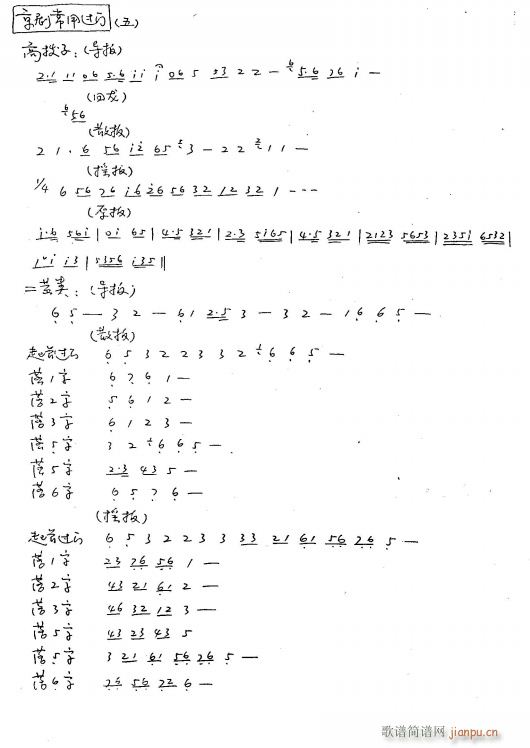 京剧常用过门(五)
高拨子:(导板)
2.1 11 06 5.6 i i i 06 5 53 2 2 — 6 5.6 76 i —
(回龙)
6 56
(散板)
2 1 . 6 56 i2 65 5 3 — 2 2 2 1 1 —
(摇板)
1/4 6 56 76 i6 26 56 32 12 32 1 - - -
(原板)
i.6 56i | 0i 65 | 4.5 321 | 2.3 5i65 | 4.5 321 | 2123 5653 | 235i 6532 |
i i3 | 5356 i35 ||
二黄类:(导板)
6 5 — 3 2 — 61 2.5 3 — 3 2 — 1 6 6 5 —
(散板)
起首过门 6 5 3 2 2 3 3 2 6 6 5 —
落1字 6 7 6 1 —
落2字 5 6 1 2 —
落3字 6 1 2 3 —
落5字 3 2 6 6 5 —
落5字 2.3 43 5 —
落6字 6 5 7 6 —
(摇板)
起首过门 6 5 3 2 2 3 3 33 21 61 56 76 5 —
落1字 23 76 56 1 —
落2字 43 21 61 2 —
落3字 46 32 12 3 —
落5字 43 23 43 5
落5字 3 21 61 56 76 5 —
落6字 76 56 72 6 —
歌谱简谱网
jianpu.cn